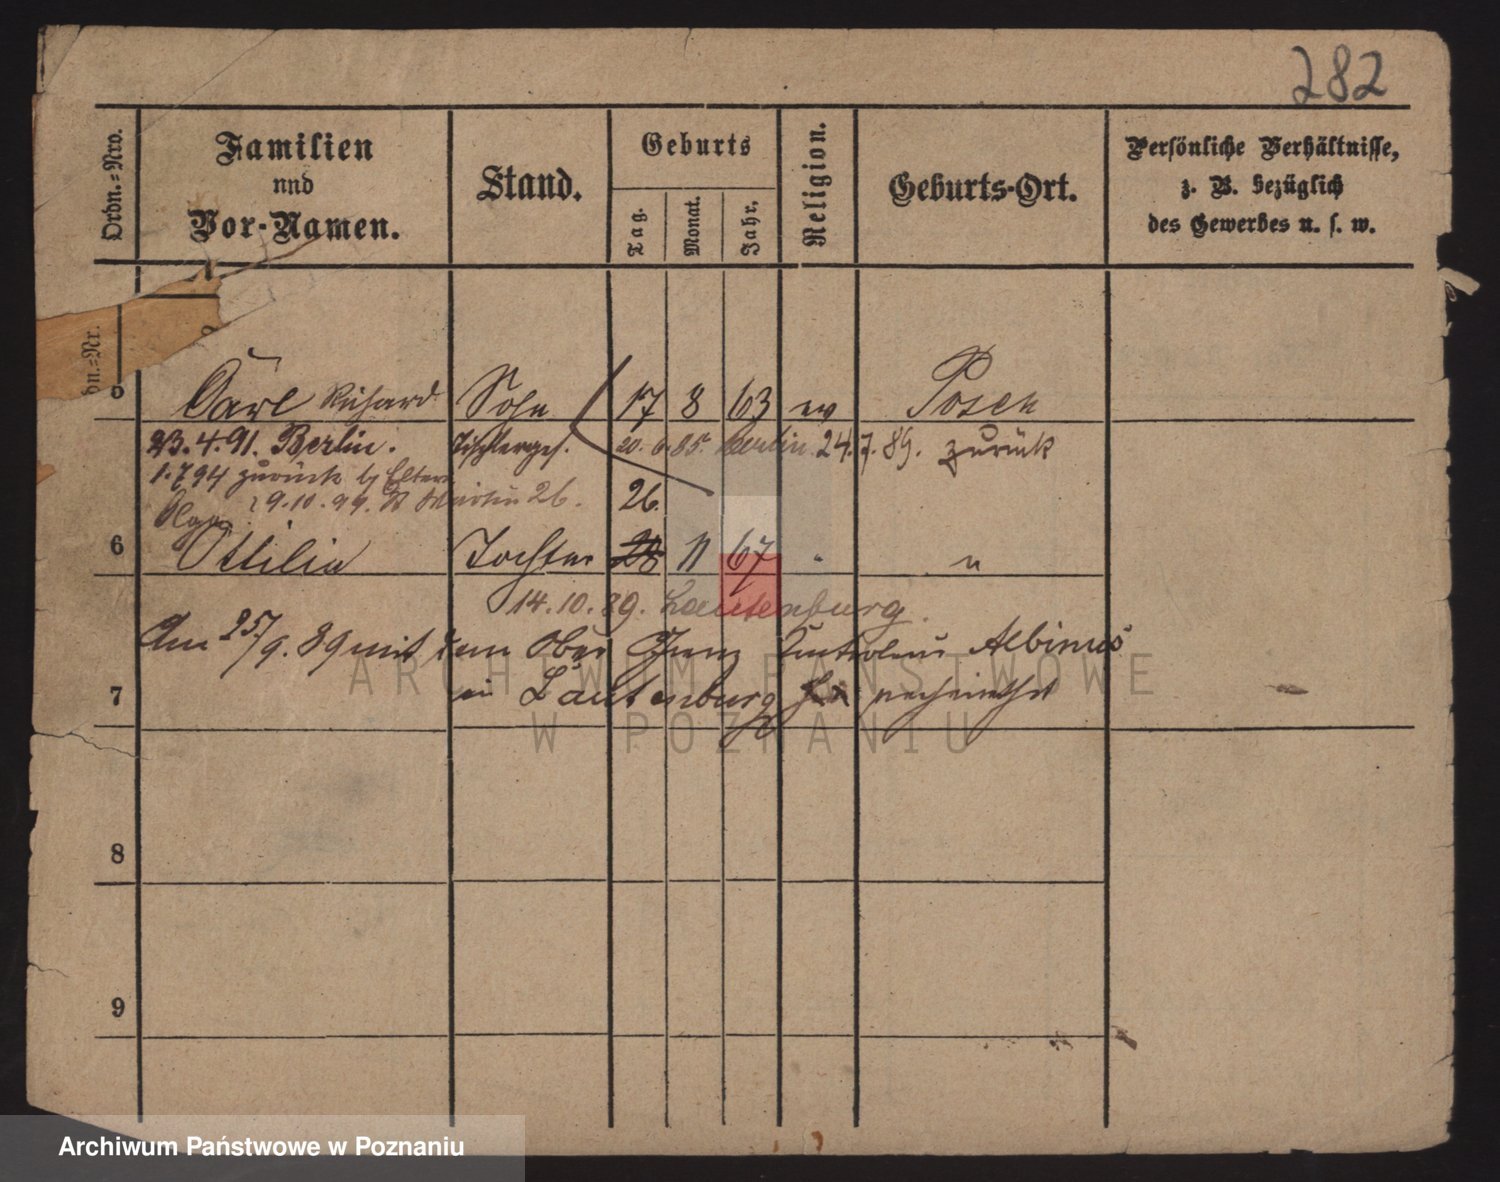 282
Ordn.=Nro.
Familien
und
Vor-Namen.
Stand.
Geburts
Tag.
Monat.
Jahr.
Religion.
Geburts-Ort.
Persönliche Verhältnisse,
z. B. bezüglich
des Gewerbes u. s. w.
dn.=Nr.
Carl Richard Sohn 17 8 63 ev Posen
23.4.91. Berlin. Tischlerges. 20.6.85. Berlin 24.7.89. zurück
1.7.94 zurück Eltern
9.10.99. St Martin 26. 26.
Olga
6 Ottilie Tochter 28 11 67 " "
14.10.89. Lautenburg.
Am 25/9.89 mit dem Ober Grenz Controleur Albinus
7 in Lautenburg verheirathet
8
9
ARCHIWUM PAŃSTWOWE
W POZNANIU
Archiwum Państwowe w Poznaniu